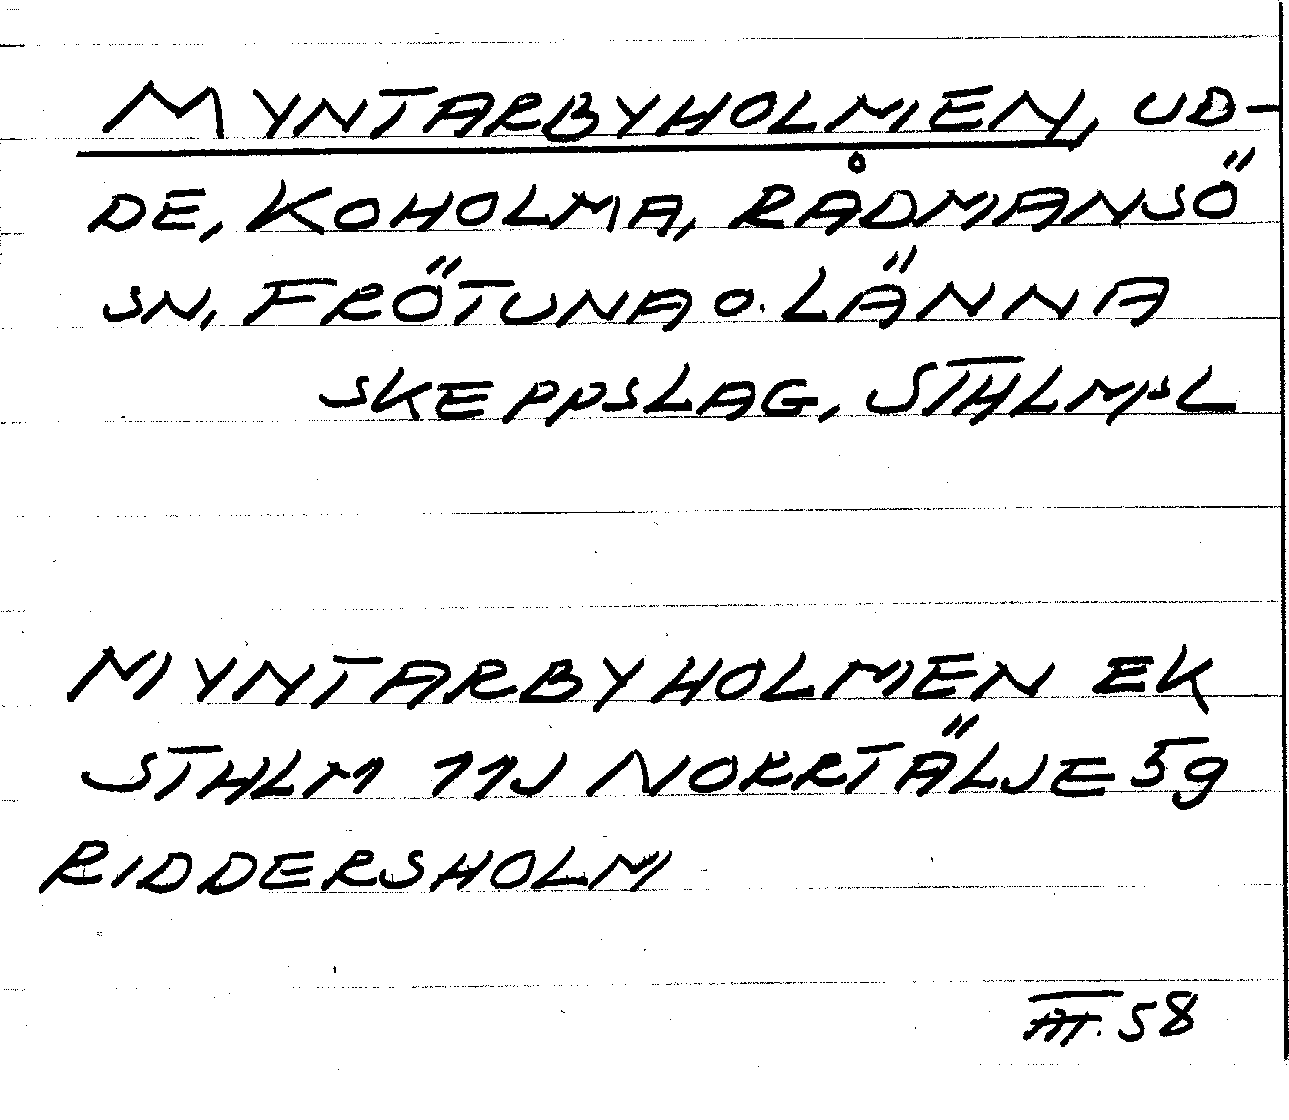 MYNTARBYHOLMEN, UD-
DE, KOHOLMA, RÅDMANSÖ
SN, FRÖTUNA O. LÄNNA
SKEPPSLAG, STHLMSL
MYNTARBYHOLMEN EK
STHLM 11J NORRTÄLJE 5g
RIDDERSHOLM
58